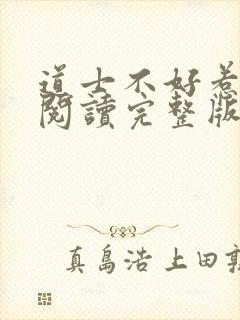 道士不好惹
閱讀完整版
真島浩 上田敦